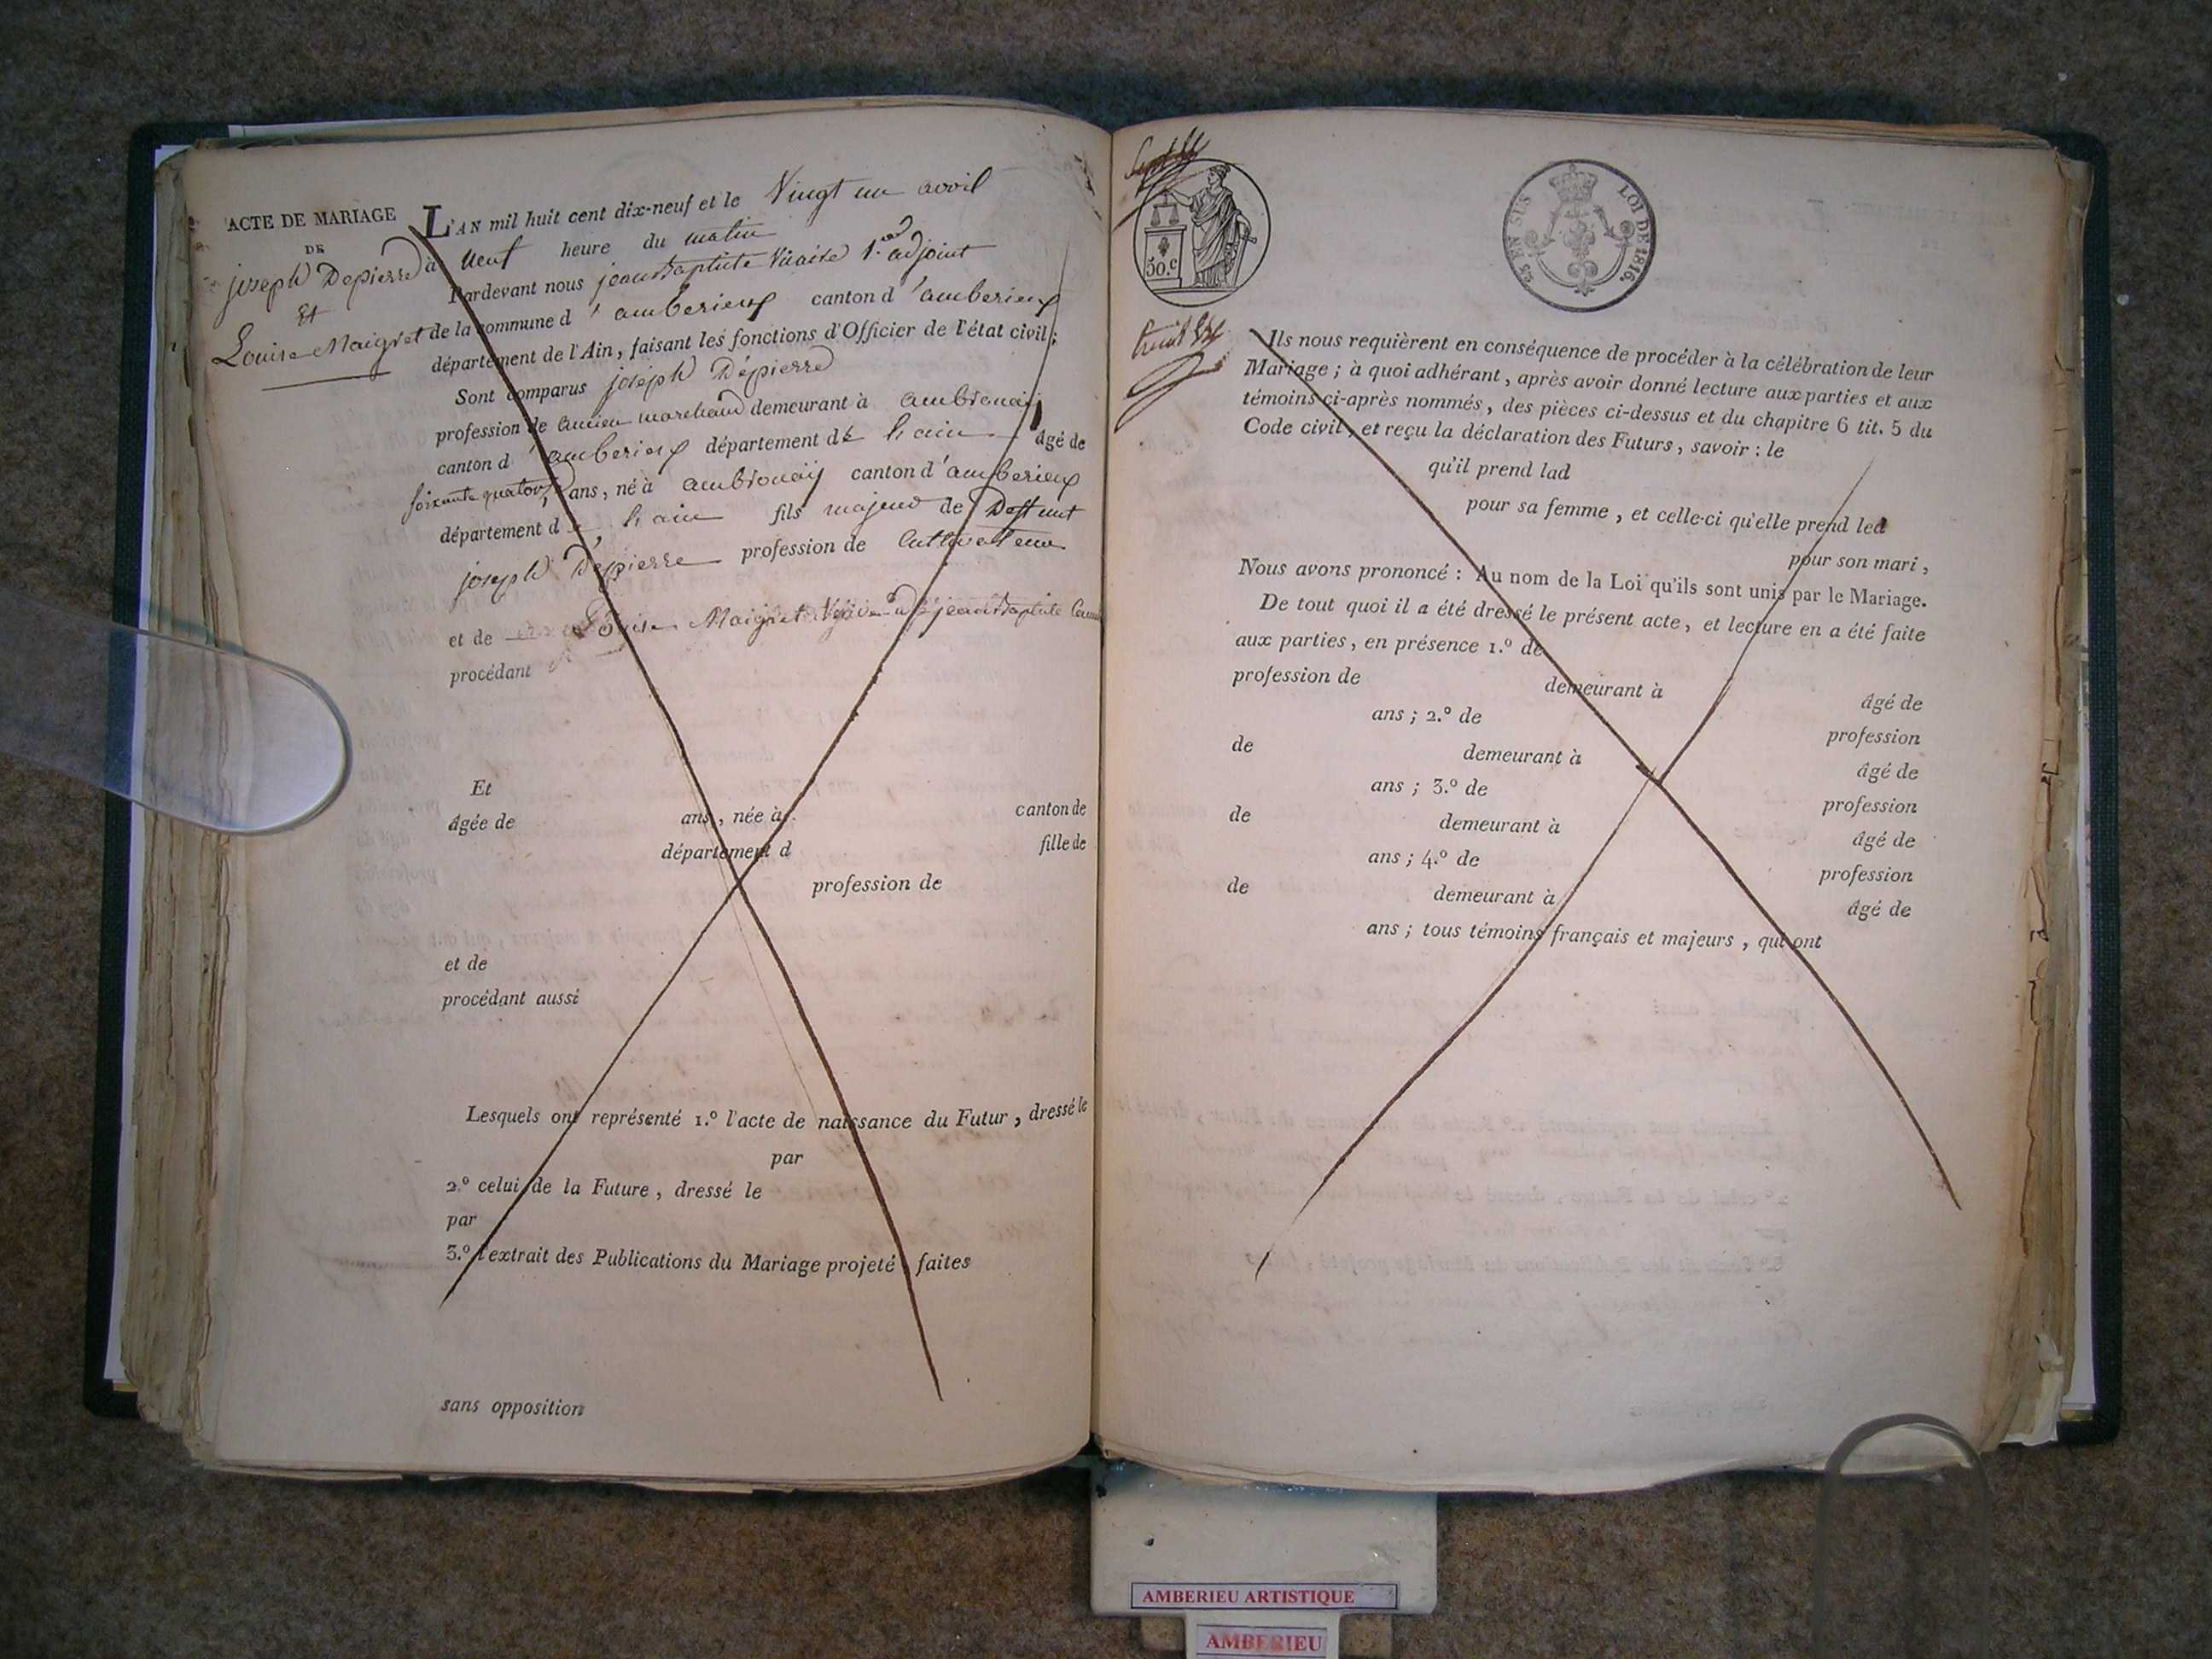 ACTE DE MARIAGE
DE
joseph Depierre
Et
Louise Maigret
L'AN mil huit cent dix-neuf et le Vingt un avril
à neuf heure du matin
Pardevant nous jean Baptiste 1.er adjoint
de la commune d'amberieux canton d'amberieux
département de l'Ain, faisant les fonctions d'Officier de l'état civil;
Sont comparus joseph Dépierre
profession de ancien marchand demeurant à ambronaÿ
canton d'amberieux département de l'ain âgé de
soixante quatorze ans, né à ambronaÿ canton d'amberieux
département de l'ain fils majeur de Deffunt
joseph Dépierre profession de Cultivateur
et de Louise Maigret Veuve de jean Baptiste
procédant
Et
âgée de ans, née à canton de
département d fille de
profession de
et de
procédant aussi
Lesquels ont représenté 1.º l'acte de naissance du Futur, dressé le
par
2.º celui de la Future, dressé le
par
3.º l'extrait des Publications du Mariage projeté, faites
sans opposition
50.c
25 EN SUS
LOI DE 1816.
Ils nous requièrent en conséquence de procéder à la célébration de leur
Mariage; à quoi adhérant, après avoir donné lecture aux parties et aux
témoins ci-après nommés, des pièces ci-dessus et du chapitre 6 tit. 5 du
Code civil, et reçu la déclaration des Futurs, savoir: le
qu'il prend lad
pour sa femme, et celle-ci qu'elle prend led
pour son mari,
Nous avons prononcé: Au nom de la Loi qu'ils sont unis par le Mariage.
De tout quoi il a été dressé le présent acte, et lecture en a été faite
aux parties, en présence 1.º de
profession de demeurant à âgé de
ans; 2.º de profession
de demeurant à âgé de
ans; 3.º de profession
de demeurant à âgé de
ans; 4.º de profession
de demeurant à âgé de
ans; tous témoins français et majeurs, qui ont
AMBERIEU ARTISTIQUE
AMBERIEU